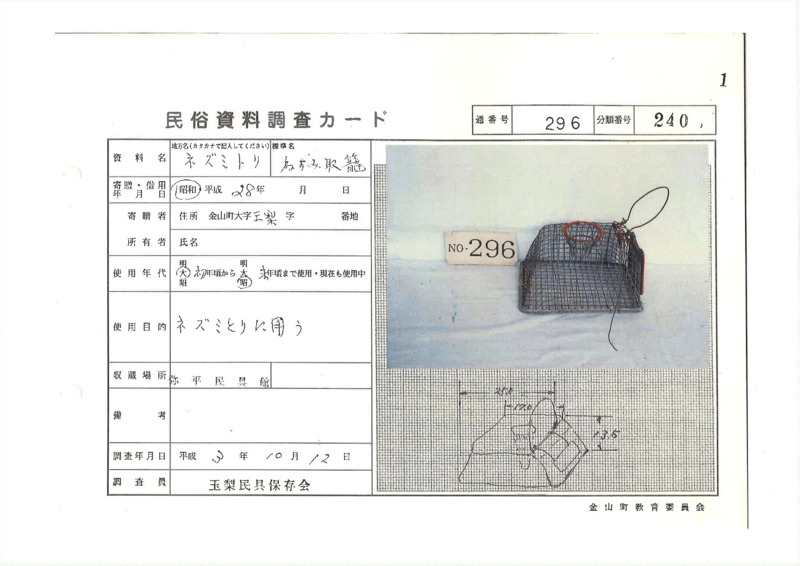 1
民俗資料調査カード
通番号 296 分類番号 240,
資料名 地方名(カタカナで記入してください) ネズミトリ 標準名 ねずみ取籠
寄贈・借用年月日 昭和・平成 28年 月 日
寄贈者 住所 金山町大字玉梨字 番地
所有者 氏名
使用年代 明大昭 初年頃から 明大昭 末年頃まで使用・現在も使用中
使用目的 ネズミとりに用う
収蔵場所 弥平民具館
備考
調査年月日 平成 3年 10月 12日
調査員 玉梨民具保存会
NO-296
25.8
17.0
13.5
金山町教育委員会